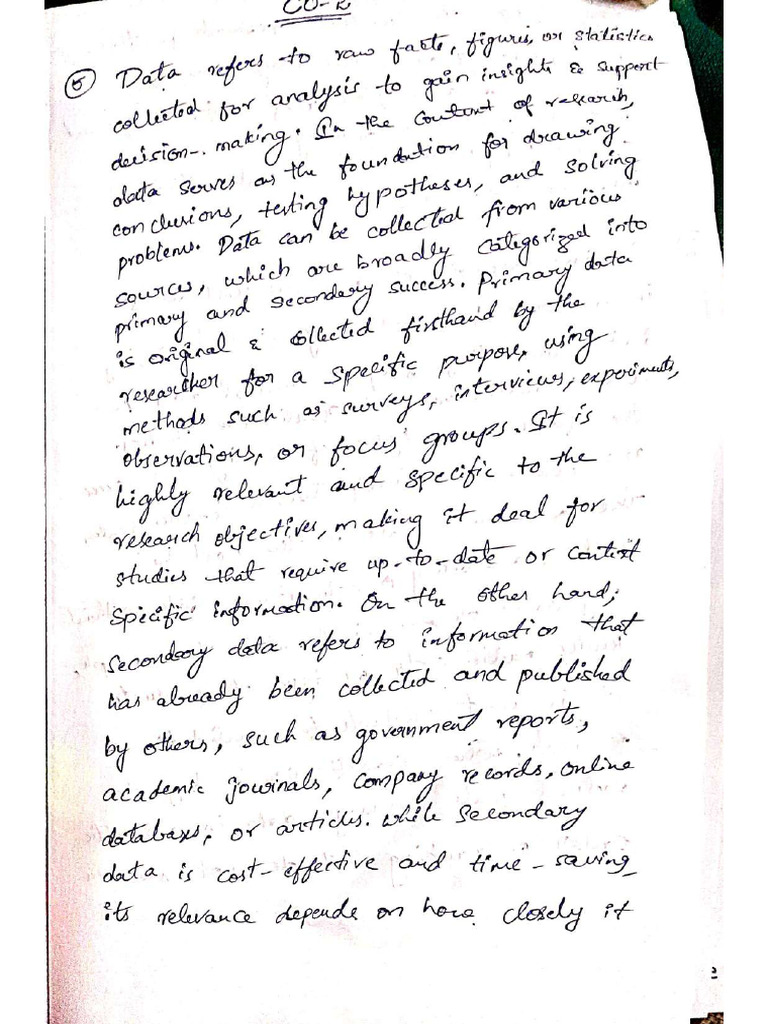 CO-2
⑤ Data refers to raw facts, figures, or statistics
collected for analysis to gain insights & support
decision-making. In the context of research,
data serves as the foundation for drawing
conclusions, testing hypotheses, and solving
problems. Data can be collected from various
sources, which are broadly categorized into
primary and secondary success. Primary data
is original & collected firsthand by the
researcher for a specific purpose, using
methods such as surveys, interviews, experiments,
observations, or focus groups. It is
highly relevant and specific to the
research objectives, making it deal for
studies that require up-to-date or context
specific information. On the other hand,
secondary data refers to information that
has already been collected and published
by others, such as government reports,
academic journals, company records, online
databases, or articles. While secondary
data is cost-effective and time-saving,
its relevance depends on how closely it